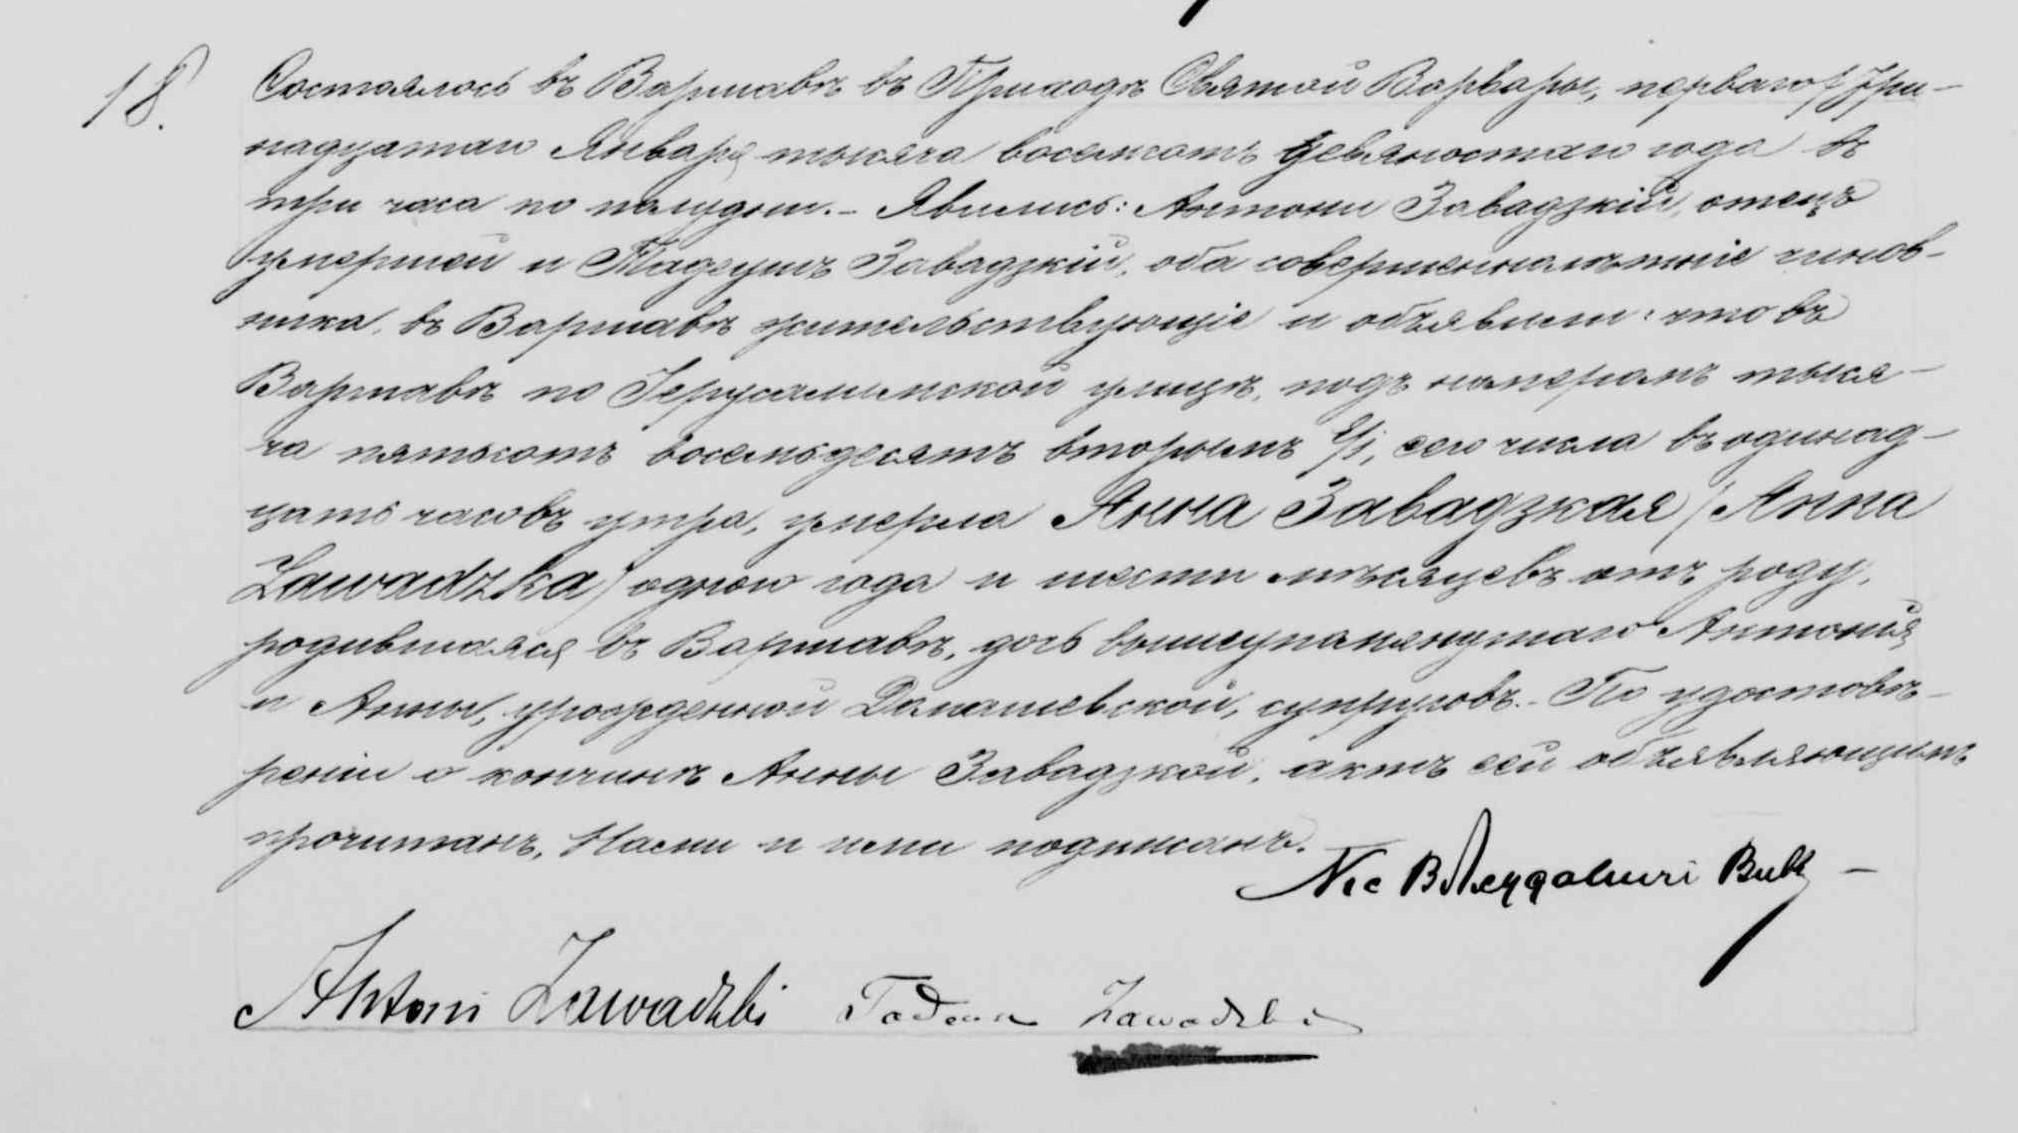 18.
Состоялось въ Варшавѣ въ Приходѣ Святой Варвары, перваго/три-
надцатаго Января тысяча восемсотъ девяностаго года въ
три часа по полудни. - Явились: Антони Завадзкій, отецъ
умершей и Тадеушъ Завадзкій, оба совершеннолѣтніе чинов-
ника, въ Варшавѣ жительствующіе и объявили: что въ
Варшавѣ по Іерусалимской улицѣ, подъ номеромъ тыся-
ча пятьсотъ восемьдесятъ вторымъ сего числа въ одинад-
цать часовъ утра, умерла Анна Завадзкая /Anna
Zawadzka/ одного года и шести мѣсяцевъ отъ роду,
родившаяся въ Варшавѣ, дочь вышеупомянутаго Антонія
и Анны, урожденной Домашевской, супруговъ. - По удостовѣ-
реніи о кончинѣ Анны Завадзкой, актъ сей объявляющимъ
прочитанъ, Нами и ими подписанъ.
Antoni Zawadzki Zawadzki